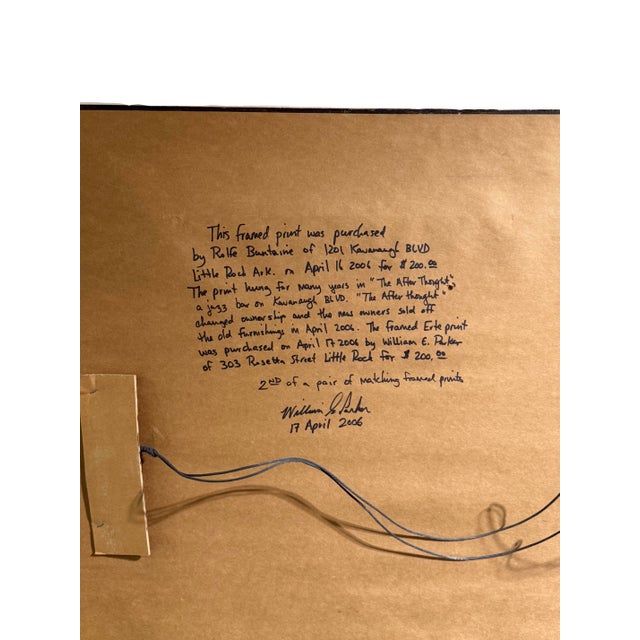 This framed print was purchased
by Rolfe Buntaine of 1201 Kavanaugh BLVD
Little Rock Ark. on April 16 2006 for $200.00
The print hung for many years in "The After Thought"
a jazz bar on Kavanaugh BLVD. "The After thought"
changed ownership and the new owners sold off
the old furnishings in April 2006. The framed Erte print
was purchased on April 17 2006 by William E. Parker
of 303 Rosetta Street Little Rock for $200.00
2ND of a pair of matching framed prints
William E Parker
17 April 2006